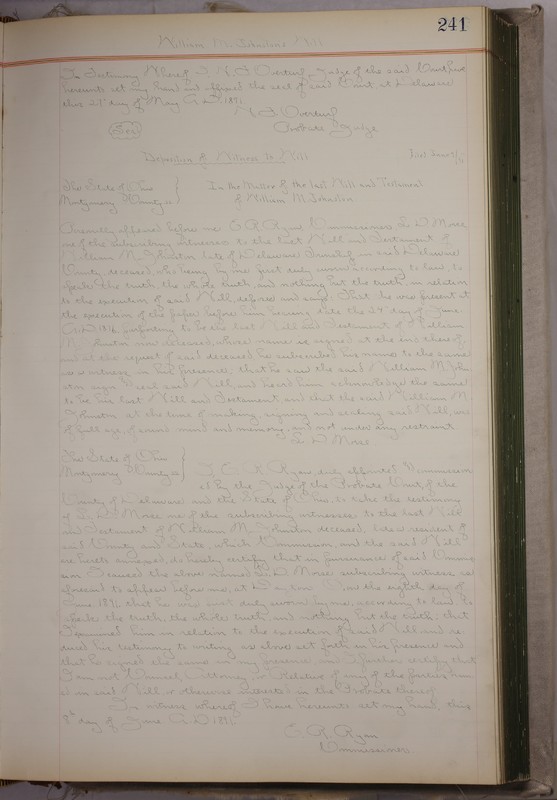 241
William M. Johnston's Will
In Testimony Whereof I, N. F. Overturf, Judge of the said Court, have
hereunto set my hand and affixed the seal of said Court at Delaware
this 29" day of May A. D. 1891
N. F. Overturf
Seal
Probate Judge
Deposition of Witness to Will
Filed June
The State of Ohio
Montgomery County ss
In the Matter of the last Will and Testament
of William M Johnston
Personally appeared before me E. R. Ryan Commissioner L. D. Morse
one of the subscribing witnesses to the last Will and Testament of
William M. Johnston late of Delaware Township in said Delaware
County, deceased, who being by me first duly sworn according to law, to
speak the truth, the whole truth, and nothing but the truth, in relation
to the execution of said Will, depose and say, That he was present at
the execution of the paper before him bearing date the 24" day of June
A. D. purporting to be the last Will and Testament of William
M. Johnston now deceased, whose name is signed at the end thereof,
and at the request of said deceased he subscribed his name to the same
as a witness in his presence, that he saw the said William M. John
ston sign said Will, and heard him acknowledge the same
to be his last Will and Testament and that the said William M
Johnston at the time of making, signing and sealing said Will, was
of full age, of sound mind and memory, and not under any restraint
L. D. Morse
The State of Ohio
Montgomery County ss
I E. R. Ryan, duly appointed Commission
er by the Judge of the Probate Court, of the
County of Delaware and the State of Ohio, to take the testimony
of L. D. Morse one of the subscribing witnesses to the last Will
and Testament of William M. Johnston deceased, late a resident of
said County and State, which Commission, and the said Will
are hereto annexed, do hereby certify that in pursuance of said Commis
sion I caused the above named L. D. Morse subscribing witness, as
aforesaid to appear before me, at Dayton Ohio on the eighth day of
June, 1891, that he was first duly sworn by me, according to law to
speak the truth, the whole truth, and nothing but the truth, that
I examined him in relation to the execution of said Will and re
duced his testimony to writing as above set forth in his presence and
that he signed the same in my presence and I further certify that
I am not Counsel, Attorney, or Relative of any of the parties nam
ed in said Will, or otherwise interested in the Probate thereof
In witness whereof I have hereunto set my hand, this
8" day of June A. D. 1891
E. R. Ryan
Commissioner.